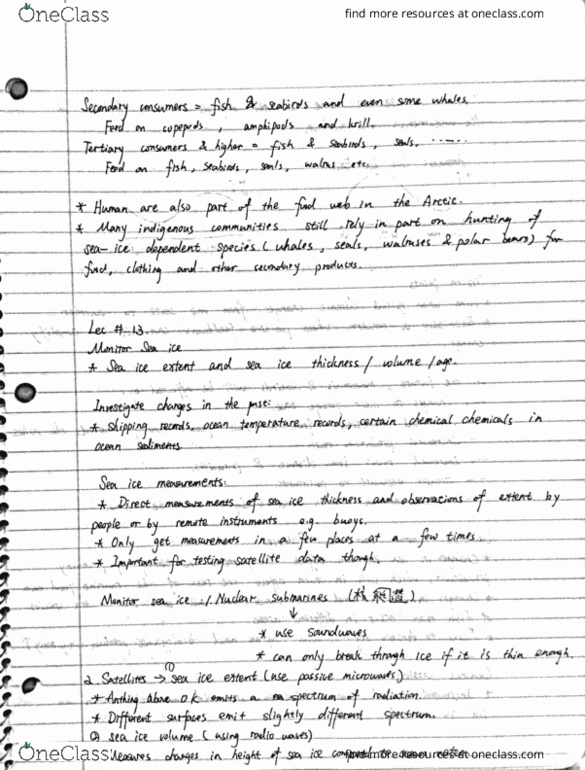 OneClass
find more resources at oneclass.com
Secondary consumers = fish & seabirds and even some whales.
Feed on copepods, amphipods and krill.
Tertiary consumers & higher = fish & seabirds, seals, ......
Feed on fish, seabirds, seals, walrus etc.
* Human are also part of the food web in the Arctic.
* Many indigenous communities still rely in part on hunting of
sea-ice dependent species (whales, seals, walruses & polar bears) for
food, clothing and other secondary produces.
Lec # 13.
Monitor Sea ice
* Sea ice extent and sea ice thickness / volume / age.
Investigate changes in the past:
* Shipping records, ocean temperature records, certain chemical chemicals in
ocean sediments.
Sea ice measurements:
* Direct measurements of sea ice thickness and observations of extent by
people or by remote instruments e.g. buoys.
* Only get measurements in a few places at a few times
* Important for testing satellite data though.
Monitor sea ice: 1. Nuclear submarines (核
↓
* use soundwaves
* can only break through ice if it is thin enough.
2. Satellites → ① sea ice extent (use passive microwaves)
* Anthing above 0 k emits a spectrum of radiation.
* Different surfaces emit slightly different spectrum.
② sea ice volume (using radio waves)
OneClass
Measures changes in height of sea ice
find more resources at oneclass.com